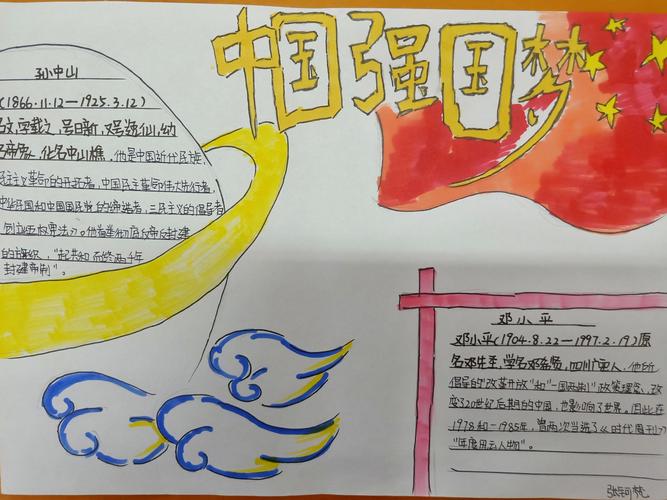 中国强国梦
孙中山
(1866.11.12—1925.3.12)
名文,字载之,号日新,又号逸仙,幼
名帝象,化名中山樵,他是中国近代民族
民主主义革命的开拓者,中国民主革命伟大先行者,
中华民国和中国国民党的缔造者,三民主义的倡导者
创立《五权宪法》。他首举彻底反帝反封建
的旗帜,“起共和而终两千年
封建帝制”。
邓小平
邓小平(1904.8.22—1997.2.19)原
名邓先圣,学名邓希贤,四川广安人,他所
倡导的“改革开放”和“一国两制”政策理念,改
变了20世纪后期的中国,也影响了世界。因此在
1978和一1985年,曾两次当选了《时代周刊》
“年度风云人物”。